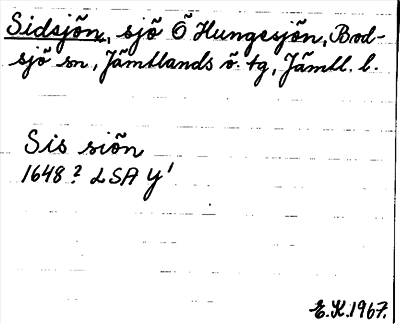 Sidsjön, sjö Ö Hungesjön, Bod-
sjö sn, Jämtlands ö. tg, Jämtl. l.
Sis siön
1648? LSA Y'
E.K. 1967.